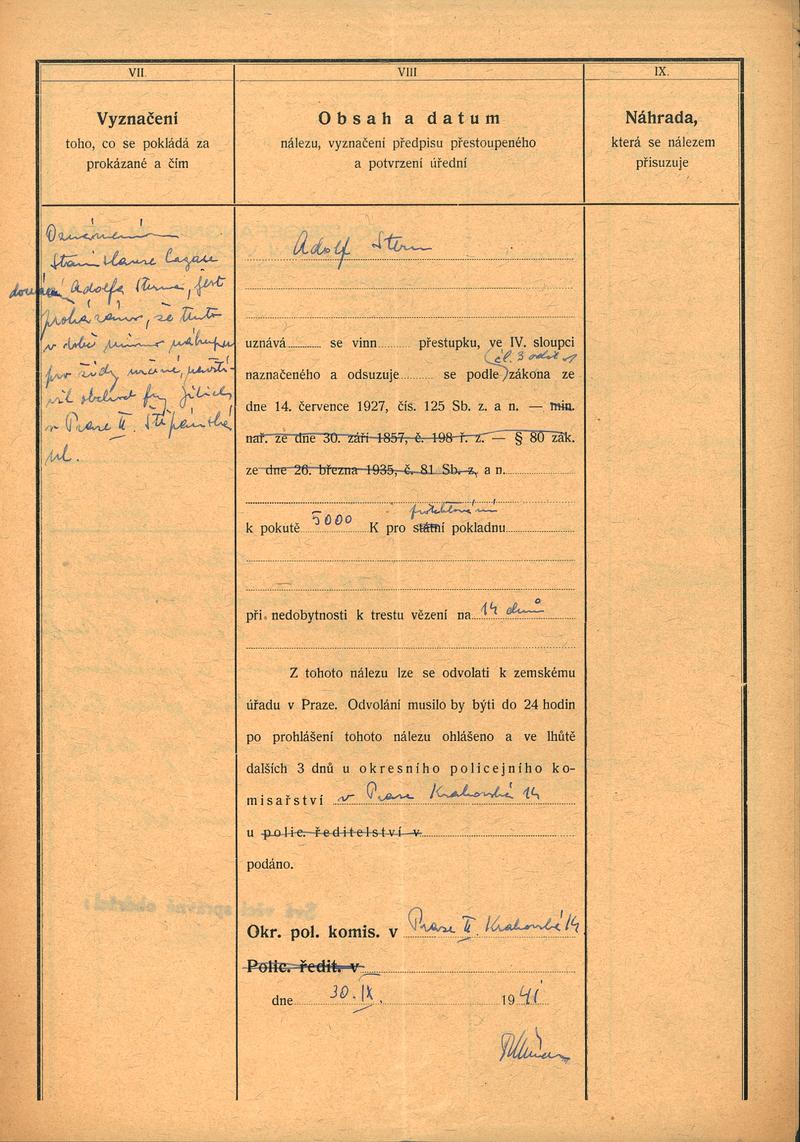 VII.
Vyznačení
toho, co se pokládá za
prokázané a čím
Oznámením
Stanislava
doznání Adolfa Sterna, jest
prokázáno, že tento
v době mimo nákupu
pro židy určené, navští-
vil obchod fy
v Praze II. Štěpánská
ul.
VIII
Obsah a datum
nálezu, vyznačení předpisu přestoupeného
a potvrzení úřední
Adolf Stern
uznává se vinn přestupku, ve IV. sloupci
(čl. 3 odst. 1
naznačeného a odsuzuje se podle) zákona ze
dne 14. července 1927, čís. 125 Sb. z. a n. — min.
nař. ze dne 30. září 1857, č. 198 ř. z. — § 80 zák.
ze dne 26. března 1935, č. 81 Sb. z. a n.
protektorátní
k pokutě 5000 K pro státní pokladnu
při nedobytnosti k trestu vězení na 14 dnů
Z tohoto nálezu lze se odvolati k zemskému
úřadu v Praze. Odvolání musilo by býti do 24 hodin
po prohlášení tohoto nálezu ohlášeno a ve lhůtě
dalších 3 dnů u okresního policejního ko-
misařství v Praze Krakovská 14
u polic. ředitelství v
podáno.
Okr. pol. komis. v Praze II. Krakovská 14
Polic. ředit. v
dne 30. IX. 1941
IX.
Náhrada,
která se nálezem
přisuzuje